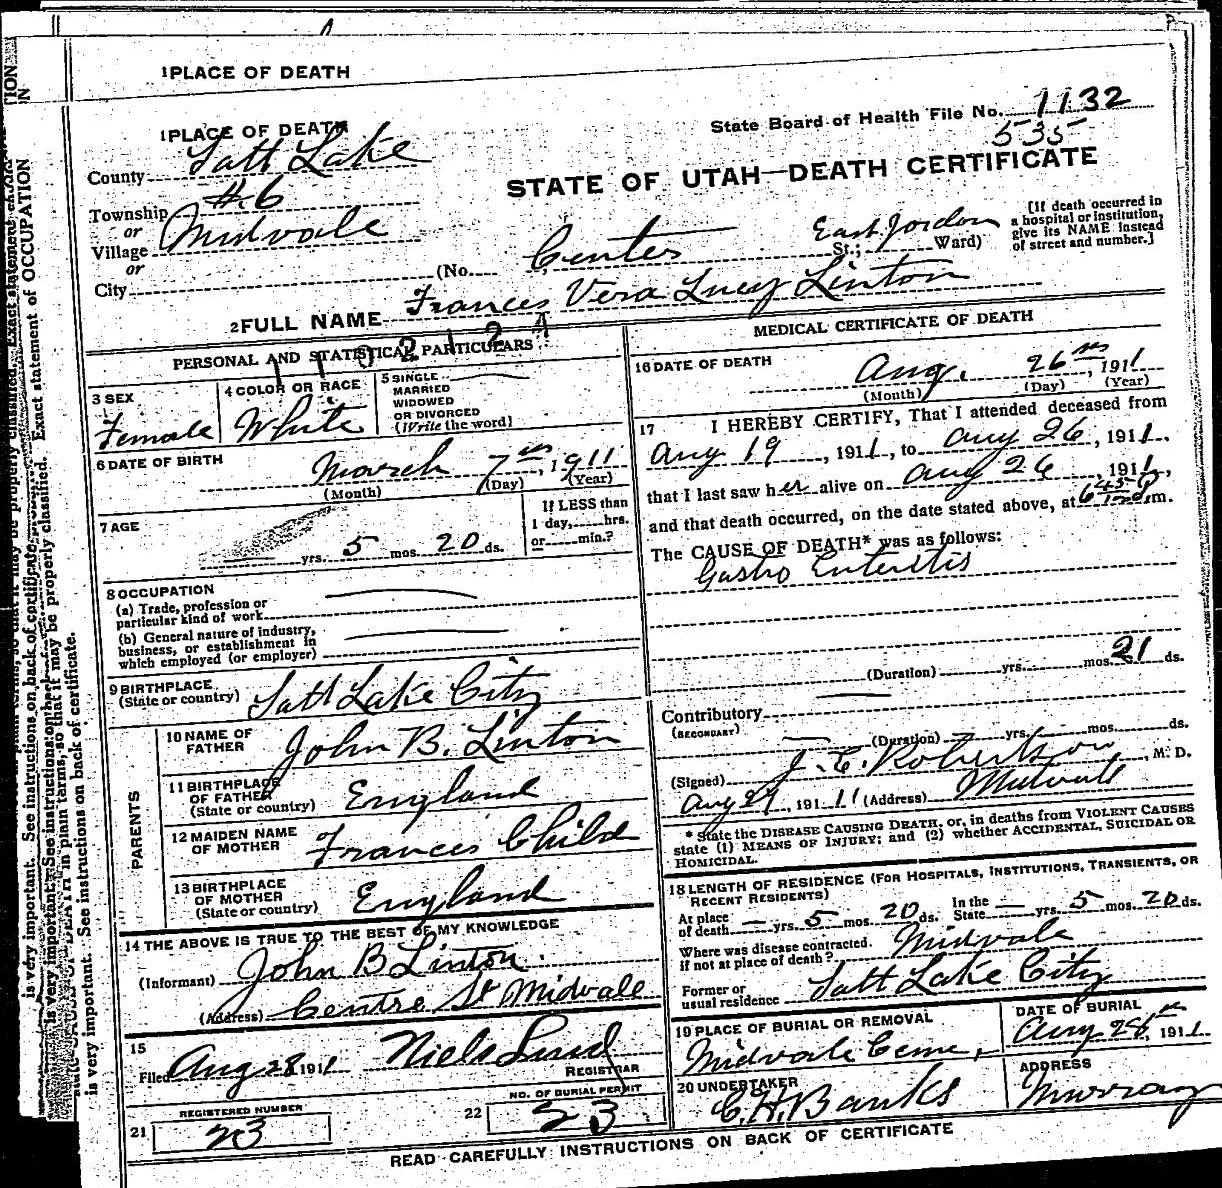 1 PLACE OF DEATH
State Board of Health File No. 1132
535
1 PLACE OF DEATH
County Salt Lake
STATE OF UTAH—DEATH CERTIFICATE
Township #6
or
Village Midvale
or
City
(No. Center St.; East Jordon Ward)
[If death occurred in
a hospital or institution,
give its NAME instead
of street and number.]
2 FULL NAME Frances Vera Lucy Linton
PERSONAL AND STATISTICAL PARTICULARS
3 SEX
Female
4 COLOR OR RACE
White
5 SINGLE
MARRIED
WIDOWED
OR DIVORCED
(Write the word)
6 DATE OF BIRTH
March 7th, 1911
(Month) (Day) (Year)
7 AGE
yrs. 5 mos. 20 ds.
If LESS than
1 day, hrs.
or min.?
8 OCCUPATION
(a) Trade, profession or
particular kind of work
(b) General nature of industry,
business, or establishment in
which employed (or employer)
9 BIRTHPLACE
(State or country) Salt Lake City
PARENTS
10 NAME OF
FATHER John B. Linton
11 BIRTHPLACE
OF FATHER
(State or country) England
12 MAIDEN NAME
OF MOTHER Frances Child
13 BIRTHPLACE
OF MOTHER
(State or country) England
14 THE ABOVE IS TRUE TO THE BEST OF MY KNOWLEDGE
(Informant) John B Linton.
(Address) Centre St Midvale
15
Filed Aug 28 1911 Niels Lind
REGISTRAR
REGISTERED NUMBER
21 23
NO. OF BURIAL PERMIT
22 23
MEDICAL CERTIFICATE OF DEATH
16 DATE OF DEATH
Aug. 26th, 1911
(Month) (Day) (Year)
17 I HEREBY CERTIFY, That I attended deceased from
Aug 19, 1911, to Aug 26, 1911.
that I last saw her alive on Aug 26, 1911,
and that death occurred, on the date stated above, at 6 45 P m.
The CAUSE OF DEATH* was as follows:
Gastro Enteritis
(Duration) yrs. mos. 21 ds.
Contributory
(SECONDARY)
(Duration) yrs. mos. ds.
(Signed) J. C. Robertson, M. D.
Aug 27, 1911 (Address) Midvale
* State the DISEASE CAUSING DEATH, or, in deaths from VIOLENT CAUSES
state (1) MEANS OF INJURY; and (2) whether ACCIDENTAL, SUICIDAL OR
HOMICIDAL.
18 LENGTH OF RESIDENCE (FOR HOSPITALS, INSTITUTIONS, TRANSIENTS, OR
RECENT RESIDENTS)
At place
of death — yrs. 5 mos. 20 ds. In the
State — yrs. 5 mos. 20 ds.
Where was disease contracted.
if not at place of death? Midvale
Former or
usual residence Salt Lake City
19 PLACE OF BURIAL OR REMOVAL
Midvale Ceme,
DATE OF BURIAL
Aug 28th, 1911.
20 UNDERTAKER
C. H. Banks
ADDRESS
Murray
READ CAREFULLY INSTRUCTIONS ON BACK OF CERTIFICATE
is very important. See instructions on back of certificate.
Exact statement of OCCUPATION